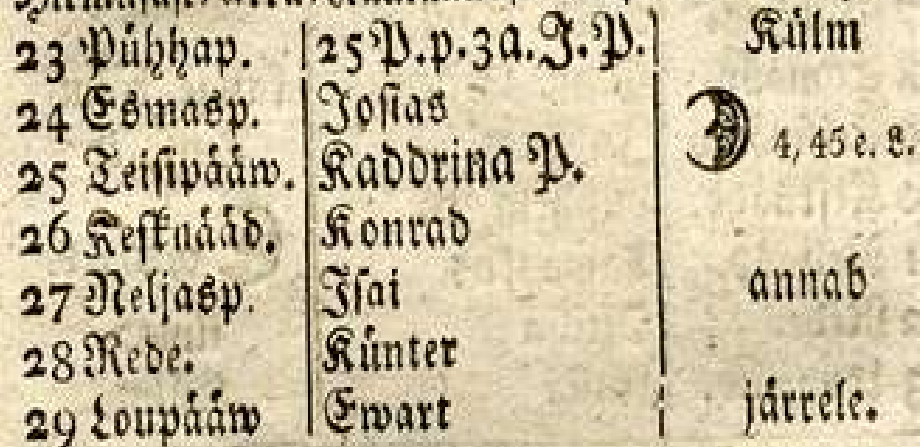 23 Pühhap. 25 P. p. 3 a. J. P. Külm
24 Esmasp. Josias
25 Teisipääw. Kaddrina P. 4, 45 e. L.
26 Kesknääd. Konrad
27 Neljasp. Isai annab
28 Rede. Künter
29 Loupääw Ewart järrele.